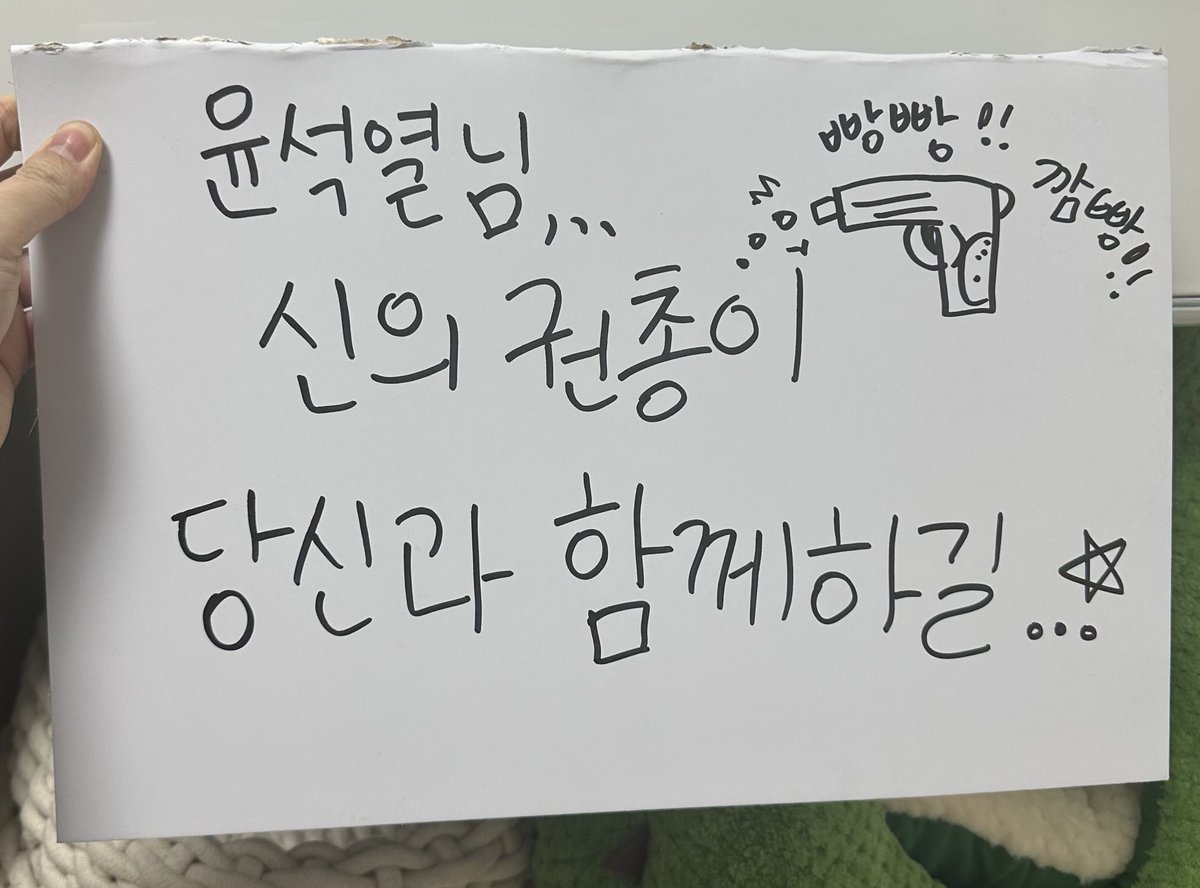 윤석열님,,,
신의 권총이
당신과 함께하길...☆
빵빵!!
깜빵!!